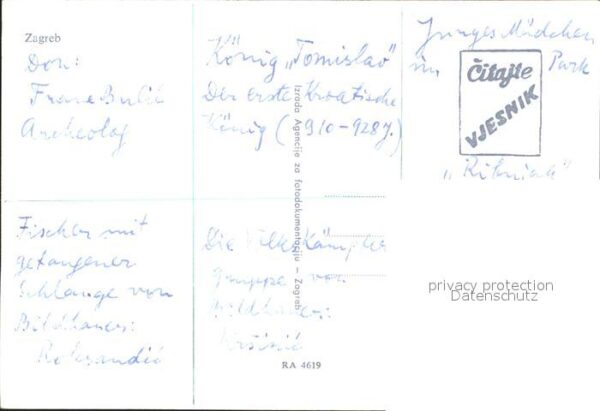 Zagreb
Don:
Frane Bulić
Archeolog
König „Tomislav"
Der erste Kroatische
König (910-928J.)
Junges Mädchen
im Park
Čitajte
VJESNIK
„Ribnjak"
Fischer mit
gefangener
Schlange von
Bildhauer:
Rosandić
Die Volkskämpfer
gruppe von
Bildhauer:
Kršinić
Izrada Agencije za fotodokumentaciju — Zagreb
RA 4619
privacy protection
Datenschutz